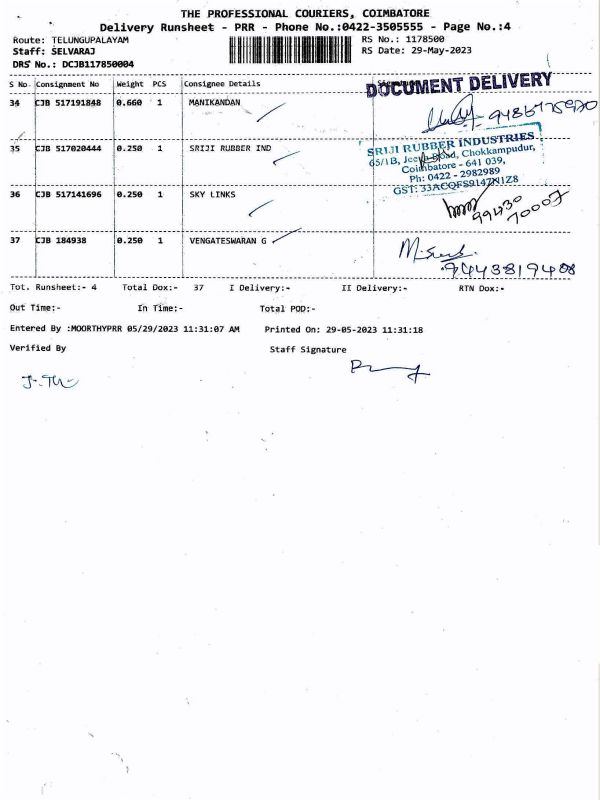 THE PROFESSIONAL COURIERS, COIMBATORE
Delivery Runsheet - PRR - Phone No.:0422-3505555 - Page No.:4
Route: TELUNGUPALAYAM
Staff: SELVARAJ
DRS No.: DCJB117850004
RS No.: 1178500
RS Date: 29-May-2023
S No. Consignment No Weight PCS Consignee Details
DOCUMENT DELIVERY
34 CJB 517191848 0.660 1 MANIKANDAN
35 CJB 517020444 0.250 1 SRIJI RUBBER IND
SRIJI RUBBER INDUSTRIES
65/1B, Road, Chokkampudur,
Coimbatore - 641 039,
Ph: 0422 - 2982989
GST: 33ACQFS9147N1Z8
36 CJB 517141696 0.250 1 SKY LINKS
99430
70007
37 CJB 184938 0.250 1 VENGATESWARAN G
9443819408
Tot. Runsheet:- 4 Total Dox:- 37 I Delivery:- II Delivery:- RTN Dox:-
Out Time:- In Time:- Total POD:-
Entered By :MOORTHYPRR 05/29/2023 11:31:07 AM Printed On: 29-05-2023 11:31:18
Verified By Staff Signature